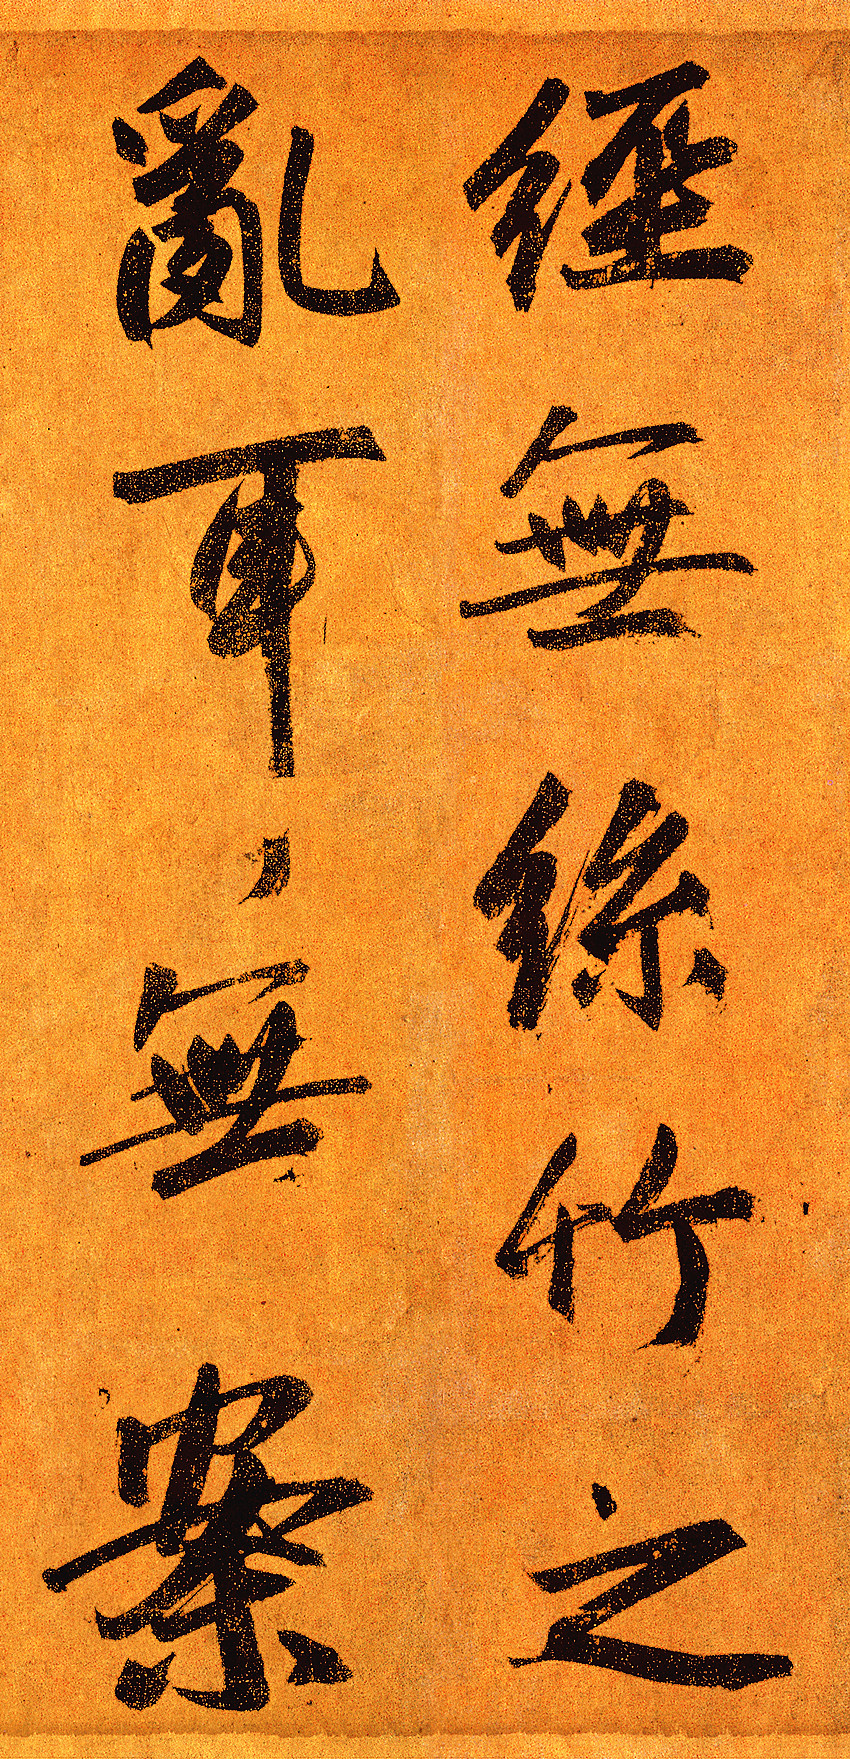 經無絲竹之
亂耳無案